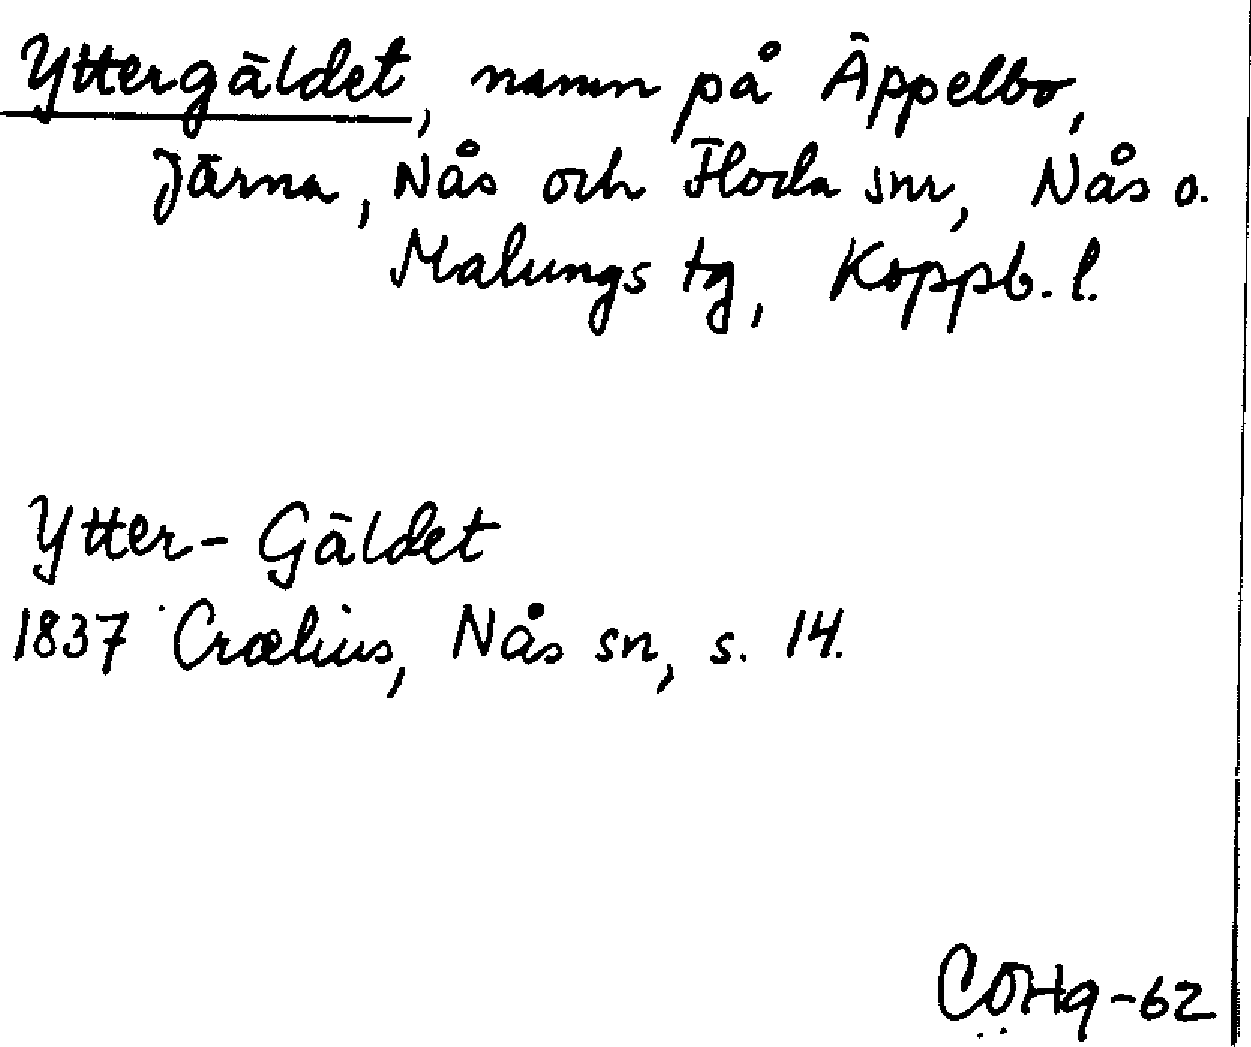 Yttergäldet, namn på Äppelbo,
Järna, Nås och Floda snr, Nås o.
Malungs tg, Koppb. l.
Ytter-Gäldet
1837 Crælius, Nås sn, s. 14.
CÖHg-62